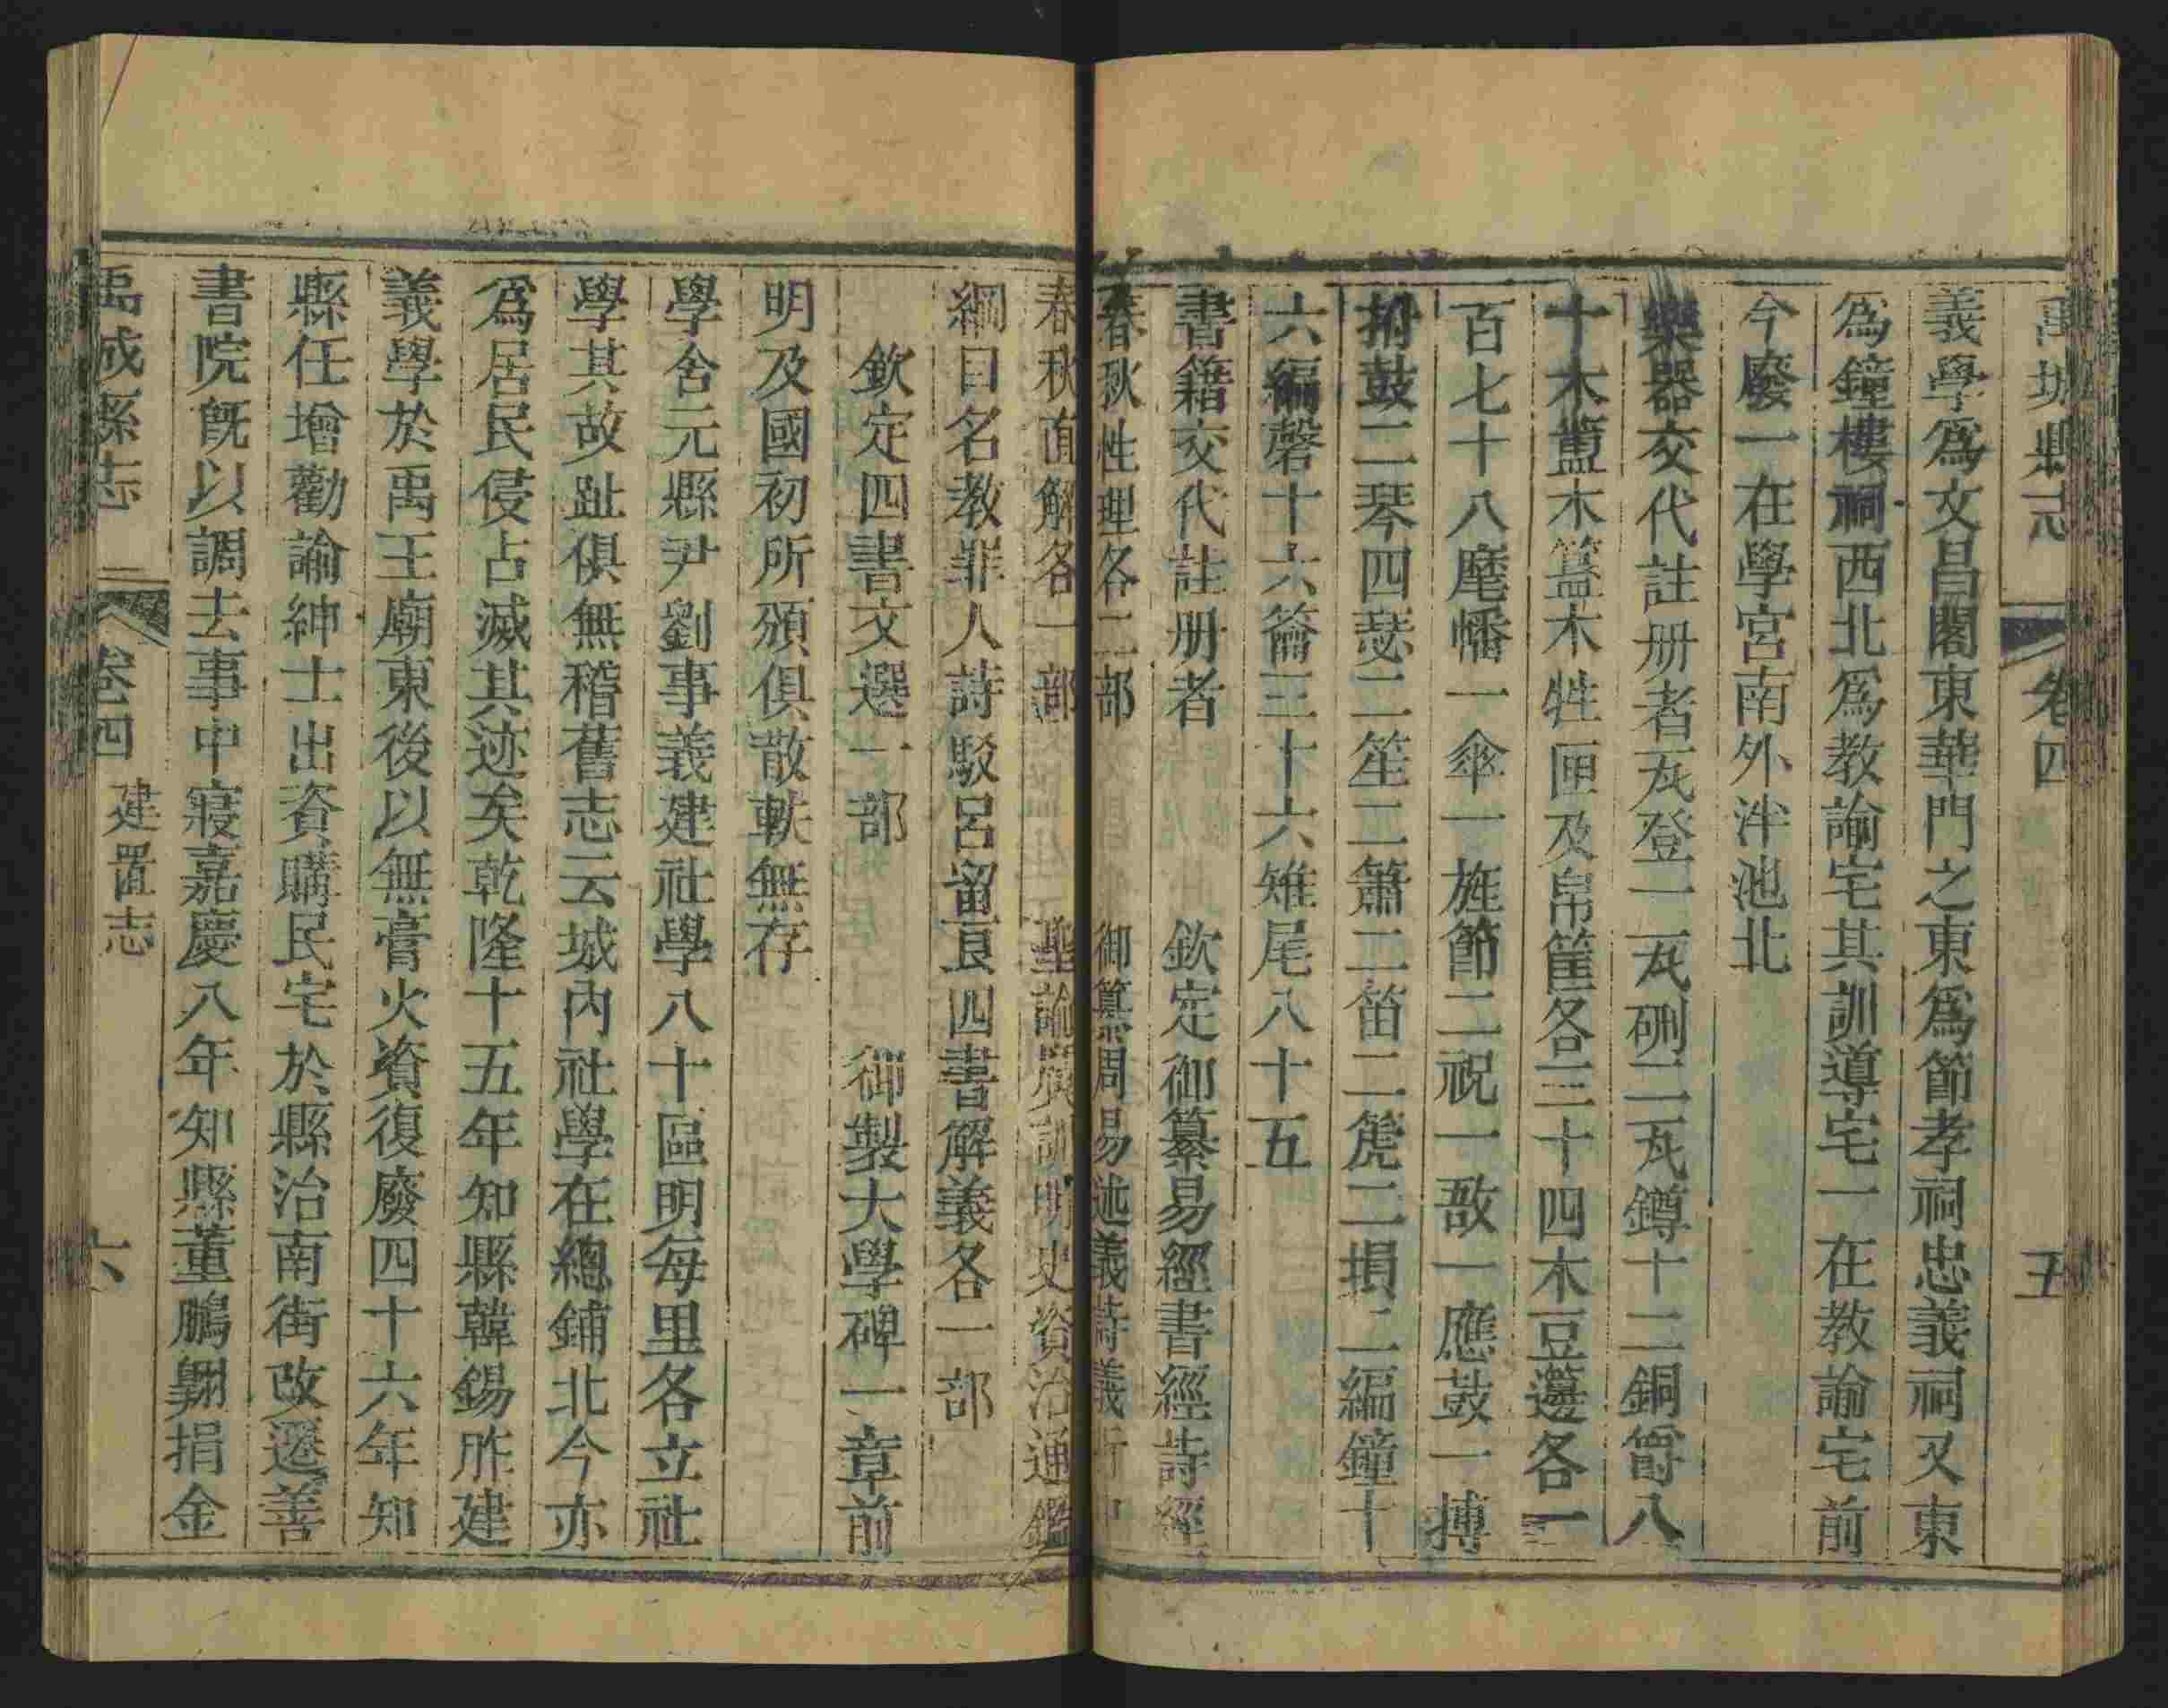 禹城縣志 卷四 五
義學爲文昌閣東華門之東爲節孝祠忠義祠又東
爲鐘樓祠西北爲教諭宅其訓導宅一在教諭宅前
今廢一在學宮南外泮池北
樂器交代註册者瓦登一瓦硎二瓦鐏十二銅爵八
十木簠木簋木牲匣及帛篚各三十四木豆籩各一
百七十八麾幡一傘一旌節二祝一敔一應鼓一搏
拊鼓二琴四瑟二笙二簫二笛二篪二塤二編鐘十
六編磬十六籥三十六雉尾八十五
書籍交代註册者 欽定御纂易經書經詩經
春秋性理各二部 御纂周易述義詩義折中
春秋直解各一部 聖諭廣訓明史資治通鑑
綱目名教罪人詩駁呂留良四書解義各一部
欽定四書文選一部 御製大學碑一章前
明及國初所頒俱散軼無存
學舍元縣尹劉事義建社學八十區明每里各立社
學其故趾俱無稽舊志云城內社學在總鋪北今亦
爲居民侵占滅其迹矣乾隆十五年知縣韓錫胙建
義學於禹王廟東後以無膏火資復廢四十六年知
縣任增勸諭紳士出資購民宅於縣治南街改遷善
書院旣以調去事中寢嘉慶八年知縣董鵬翺捐金
禹城縣志 卷四 建置志 六